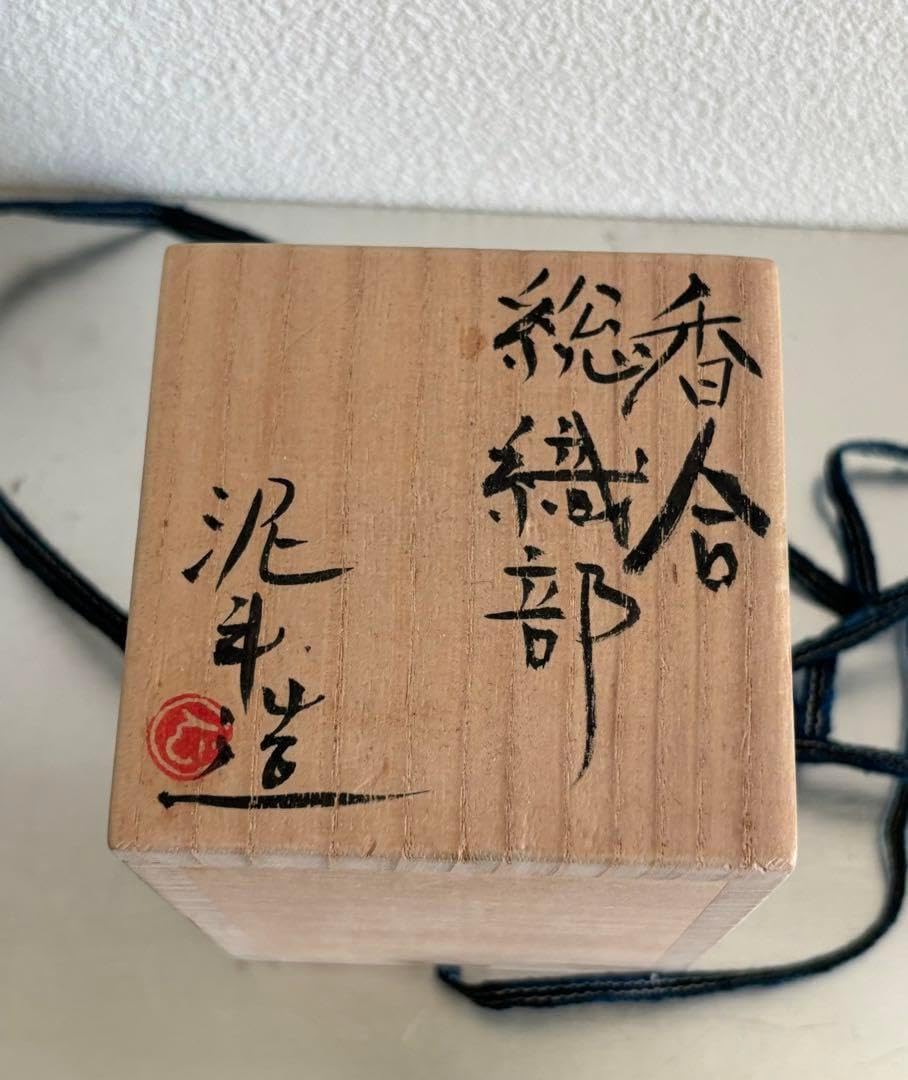 香合
総織部
泥斗造